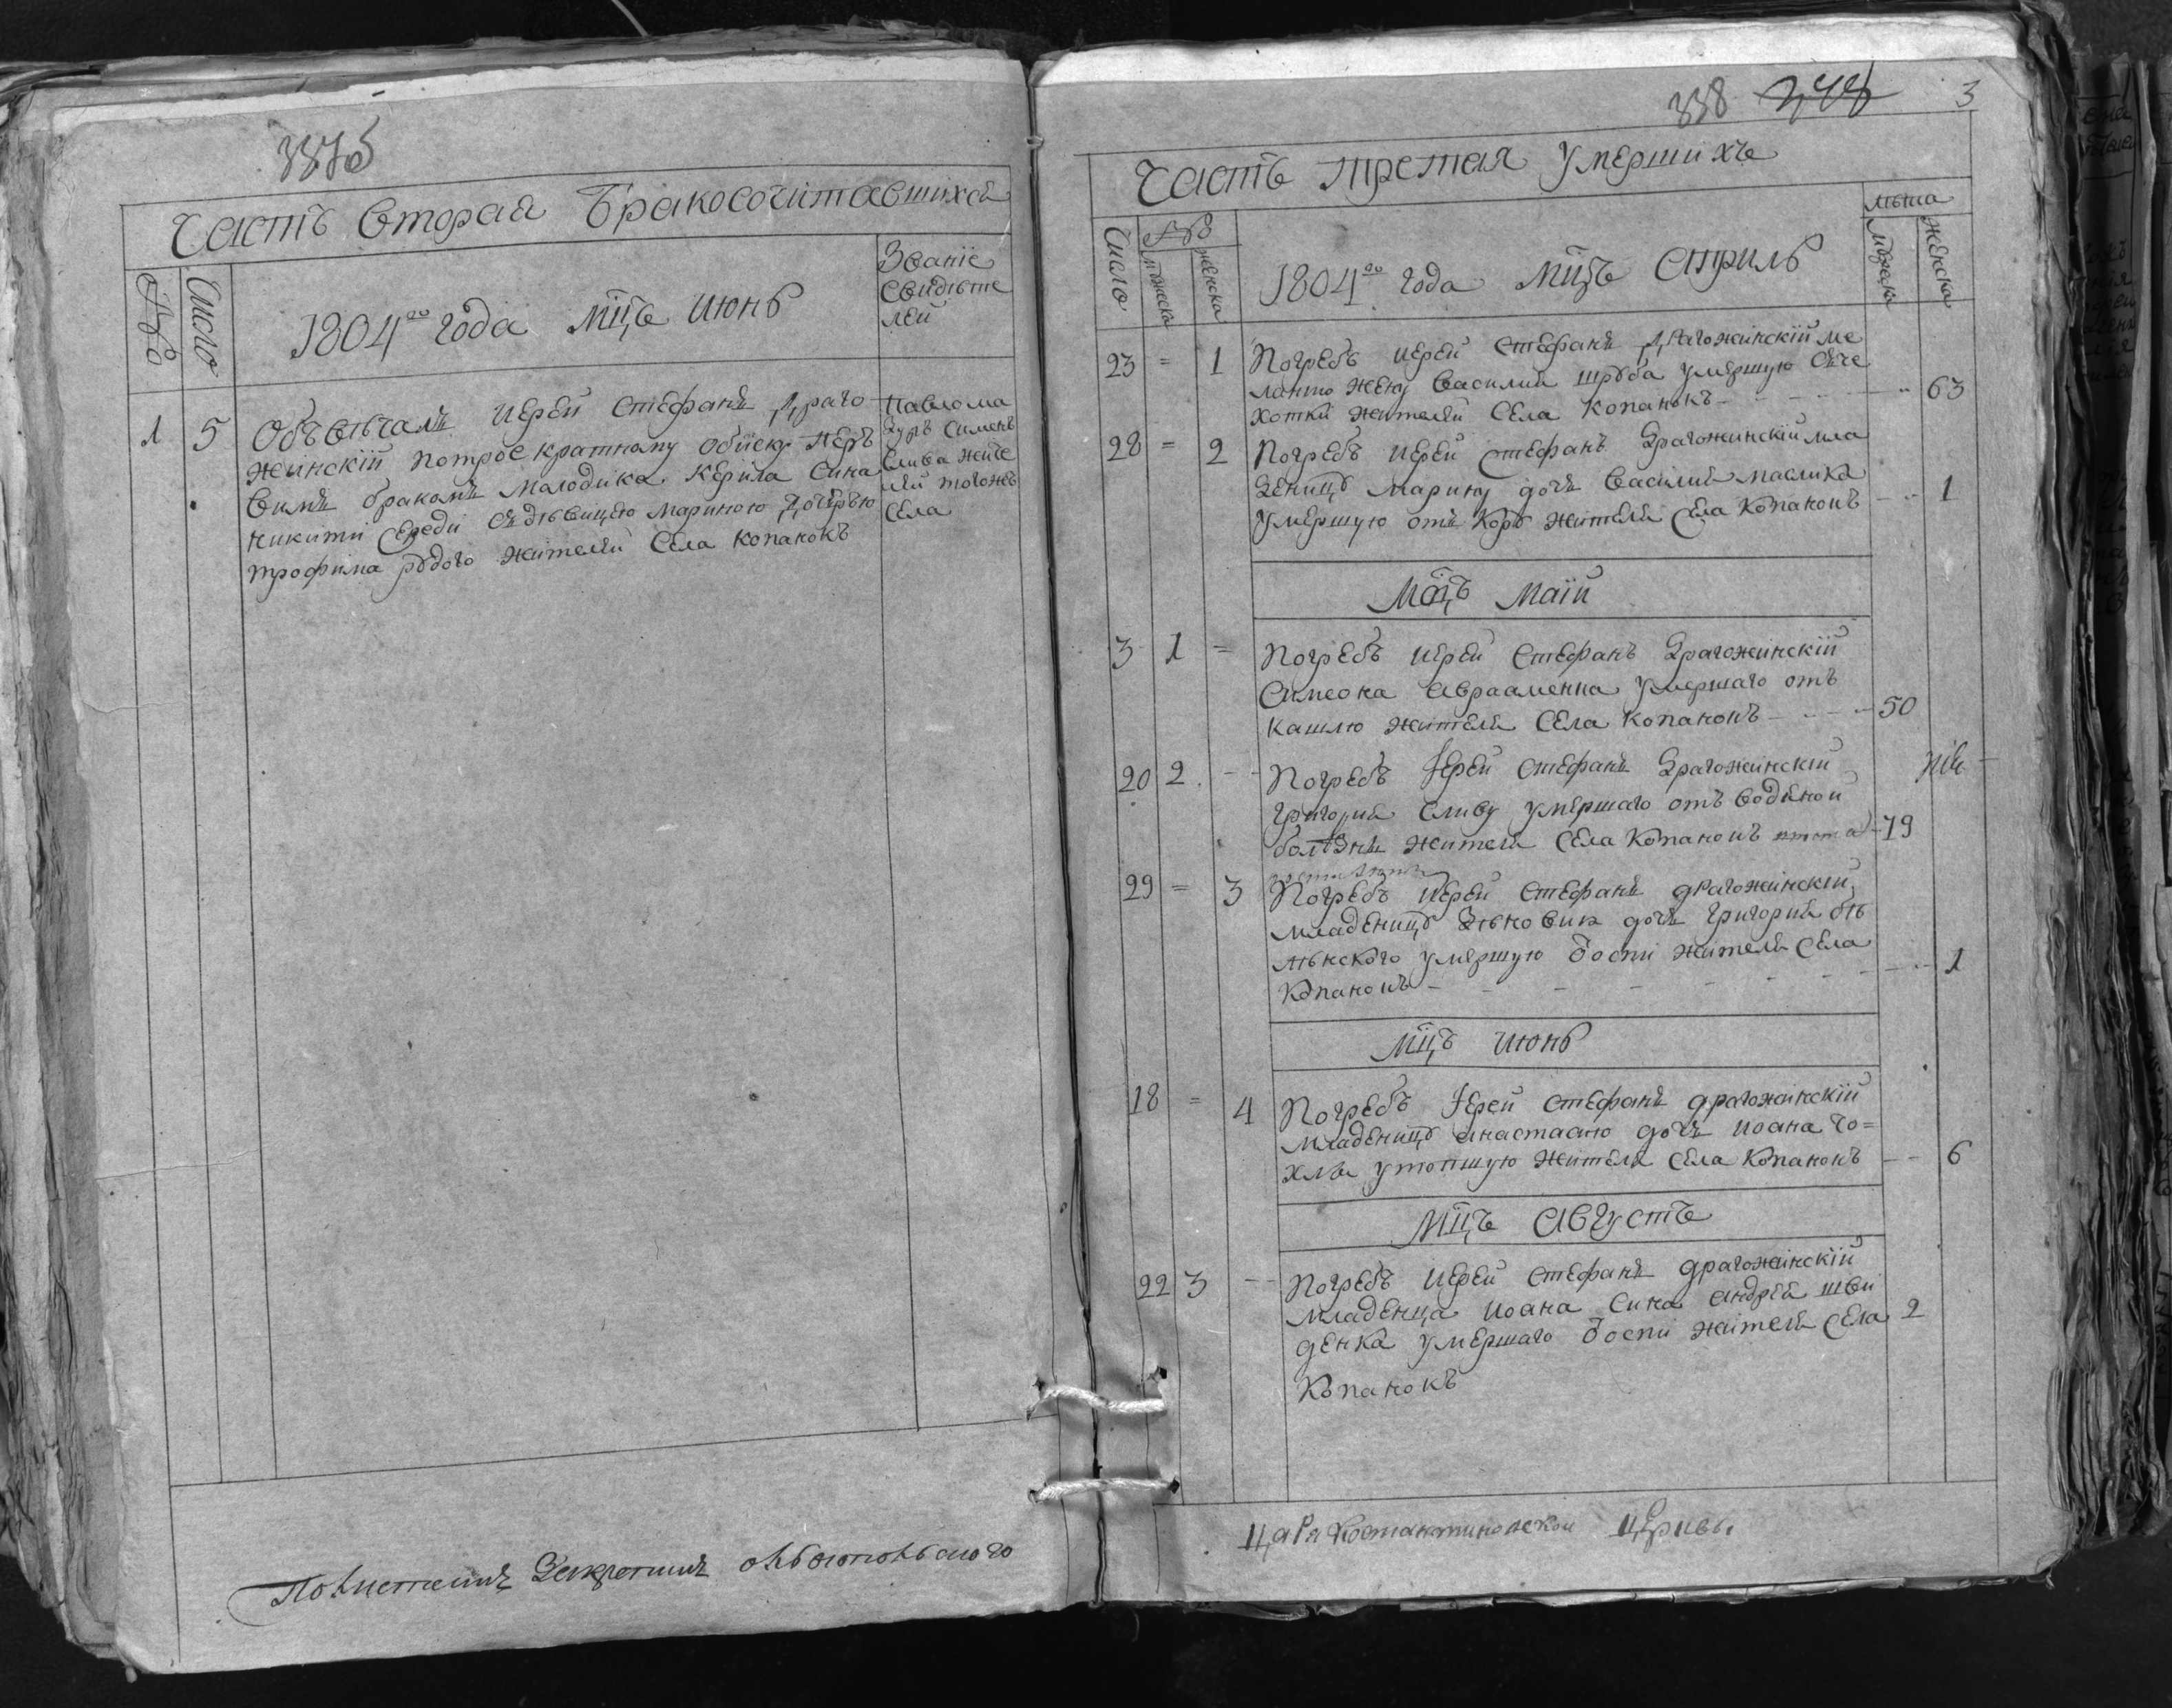 Часть вторая Бракосочитавшихся
Число
1804го года Мцъ июнь
Званїе
свидѣте
лей
1 5 Обвѣнчалъ иерей стефанъ Драго
жинскїй по трое кратному обиску пер
вимъ бракомъ молодика Керила сина
никити середи съ дѣвицею мариною дочерью
трофима рудого жителей села копанокъ
Павло ма
зуръ Сименъ
слива жите
лей тогожъ
села
338 3
Часть третая умершихъ
Число
мужеска
женска
1804го года Мцъ априль
лѣта
мужеска
женска
23 = 1 Погребъ иерей стефанъ Драгожинскїй ме
ланию жену василия умершую
жителей села копанокъ 63
28 = 2 Погребъ иерей стефанъ Драгожинскїй мла
деницу марину дочь василия маслика
умершую отъ кору жителя села копанокъ 1
Мцъ маїй
3 1 = Погребъ иерей стефанъ Драгожинскїй
симеона авраменка умершаго отъ
кашлю жителя села копанокъ 50
20 2 -- Погребъ Іерей стефанъ Драгожинскїй
григория сливу умершаго отъ водяной
болѣзни жителя села копанокъ 79
29 = 3 Погребъ иерей стефанъ драгожинскїй
младеницу дочь григория бѣ
лѣнского умершую воспи жителя села
копанокъ 1
Мцъ июнь
18 = 4 Погребъ Іерей стефанъ драгожинскїй
младеницу анастасию дочь иоана чо=
хлѣ утопшую жителя села копанокъ 6
Мцъ августъ
22 3 -- Погребъ иерей стефанъ драгожинскїй
младенца иоана сина андрея шви
денка умершаго воспи жителя села 2
копанокъ
Царя Костантиновской церкви